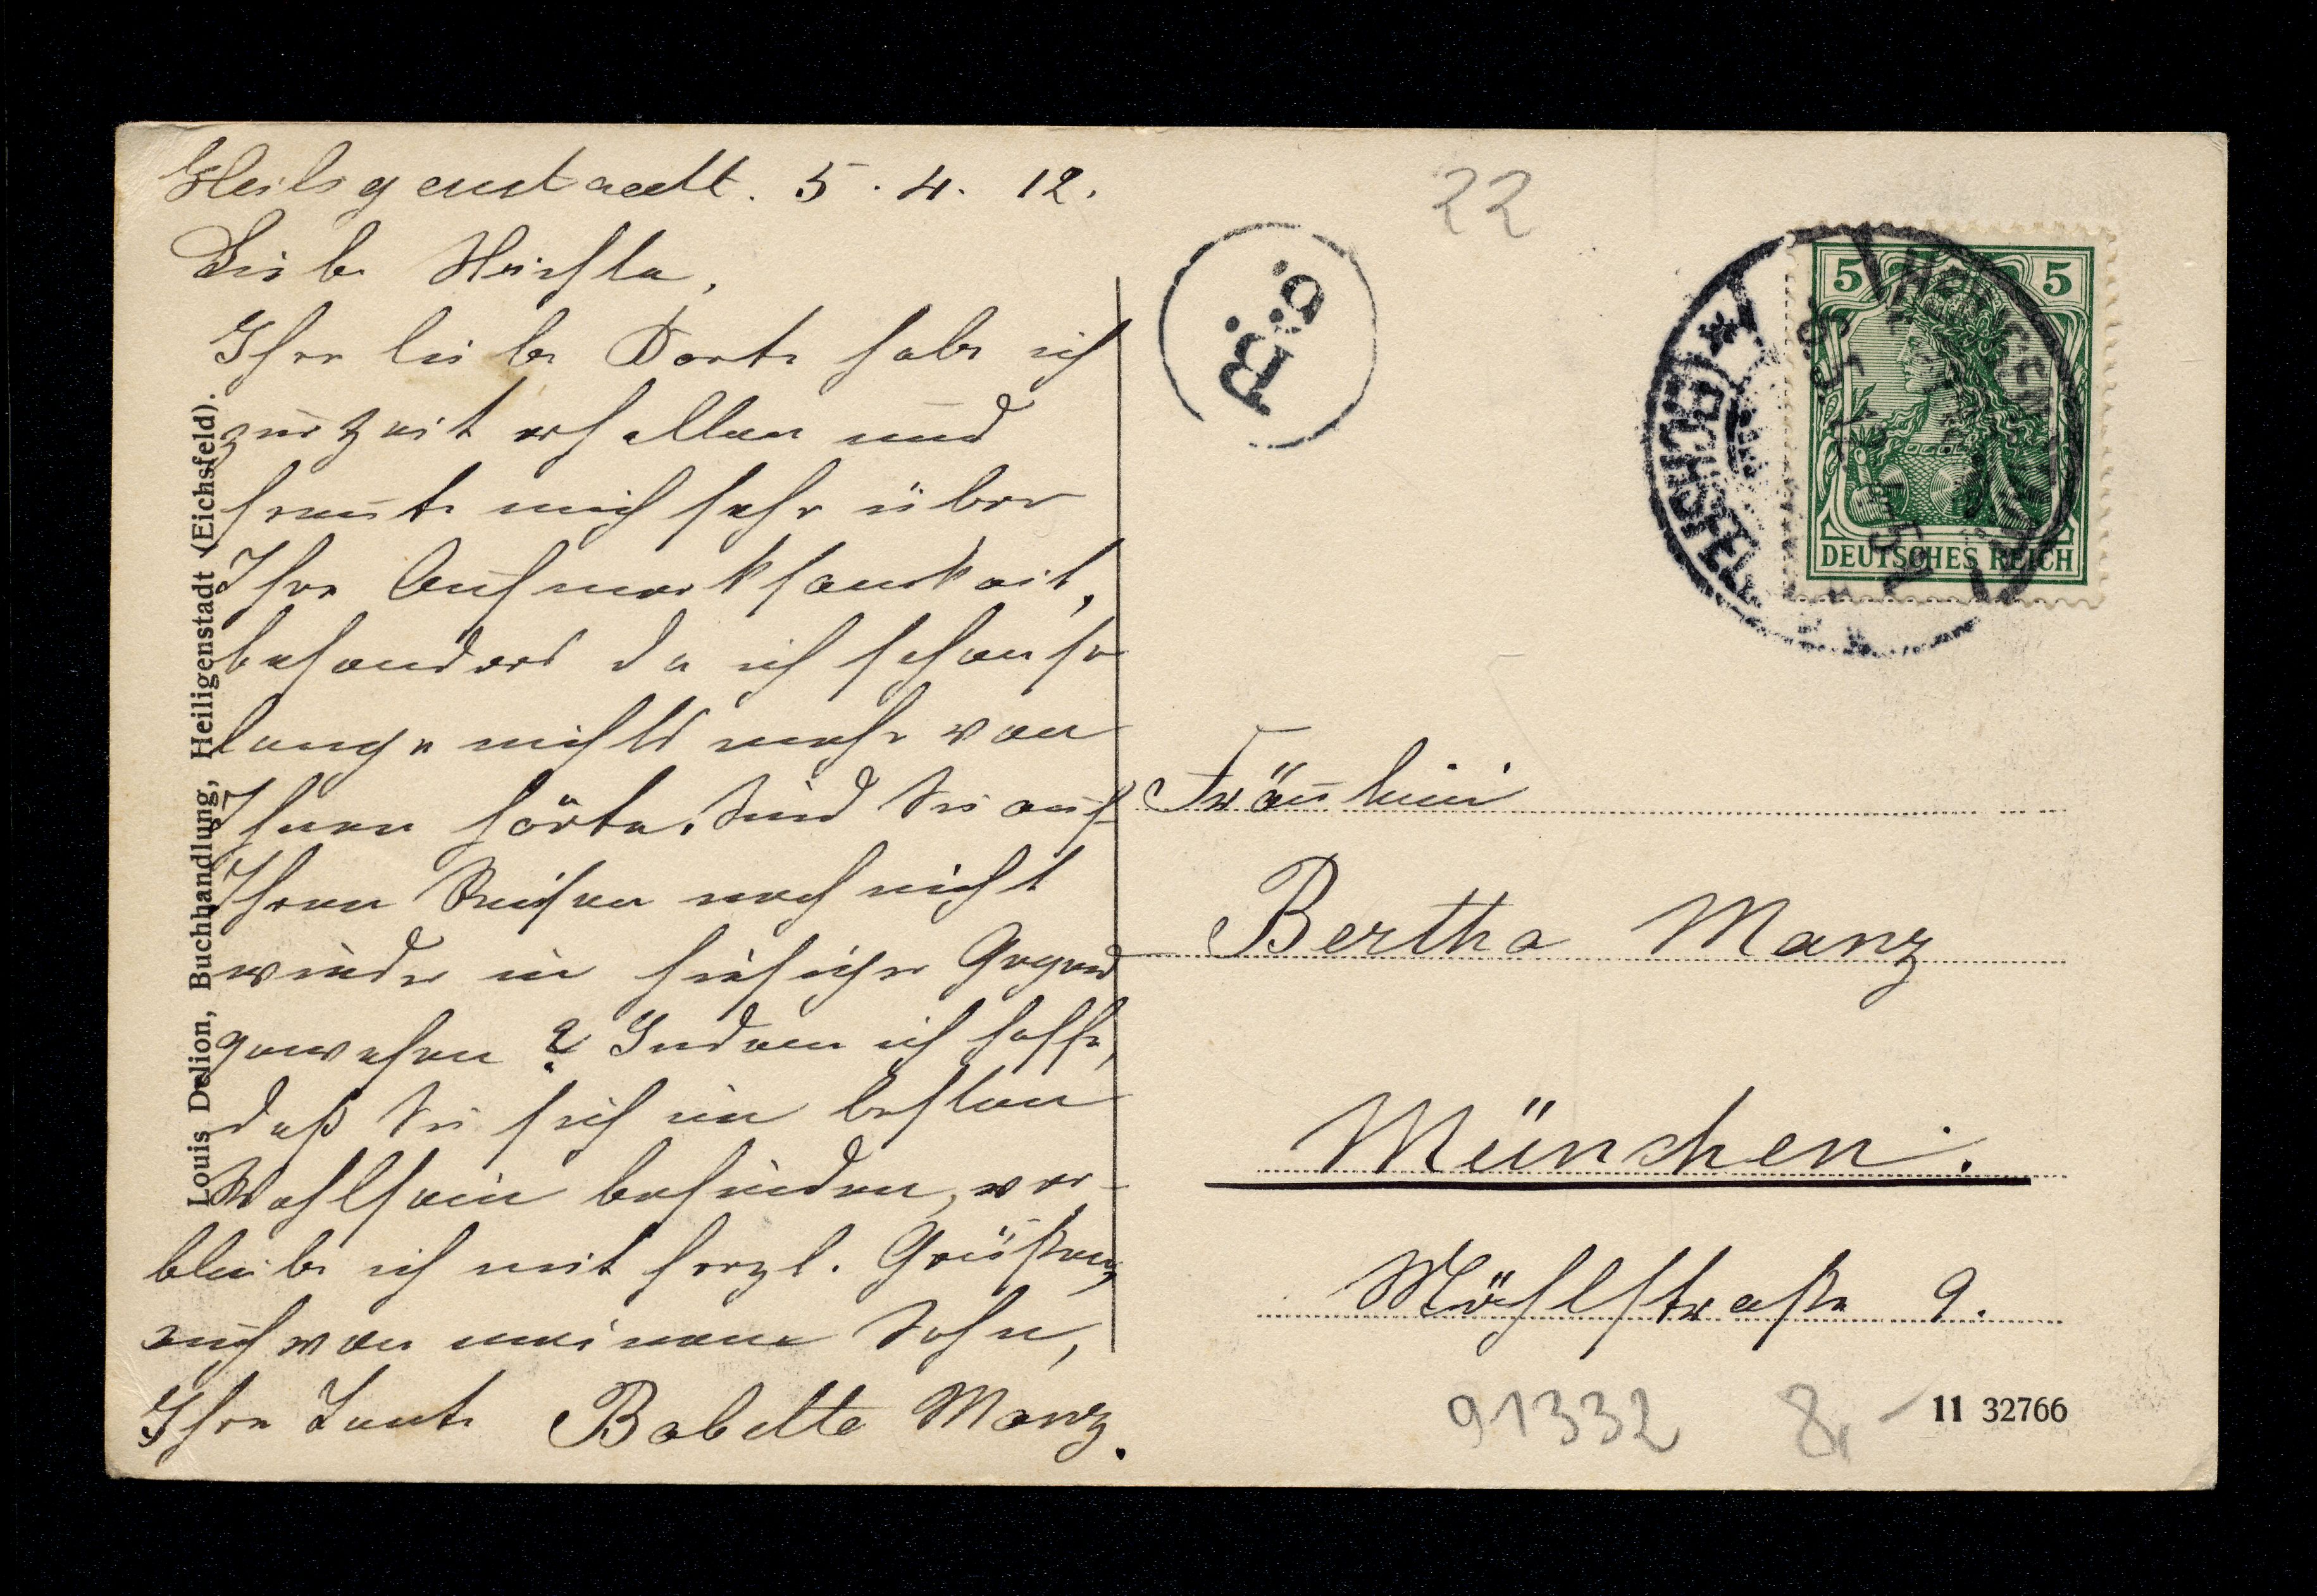 Heiligenstadt. 5. 4. 12.
Liebe Nichte,
Ihre liebe Karte habe ich
zur Zeit erhalten und
freute mich sehr über
Ihre Aufmerksamkeit,
besonders da ich schon so
lange nichts mehr von
Ihnen hörte. Sind Sie auf
Ihren Reisen noch nicht
wieder in hiesiger Gegend
gewesen? Indem ich hoffe,
daß Sie sich im besten
Wohlsein befinden, ver-
bleibe ich mit herzl. Grüßen,
auch von meinem Sohn,
Ihre Tante Babette Manz.
Louis Delion, Buchhandlung, Heiligenstadt (Eichsfeld).
22
B. o.
5 5
DEUTSCHES REICH
(EICHSFELD)
Fräulein
Bertha Manz
München.
Möhlstraße 9.
91332 8,-
11 32766